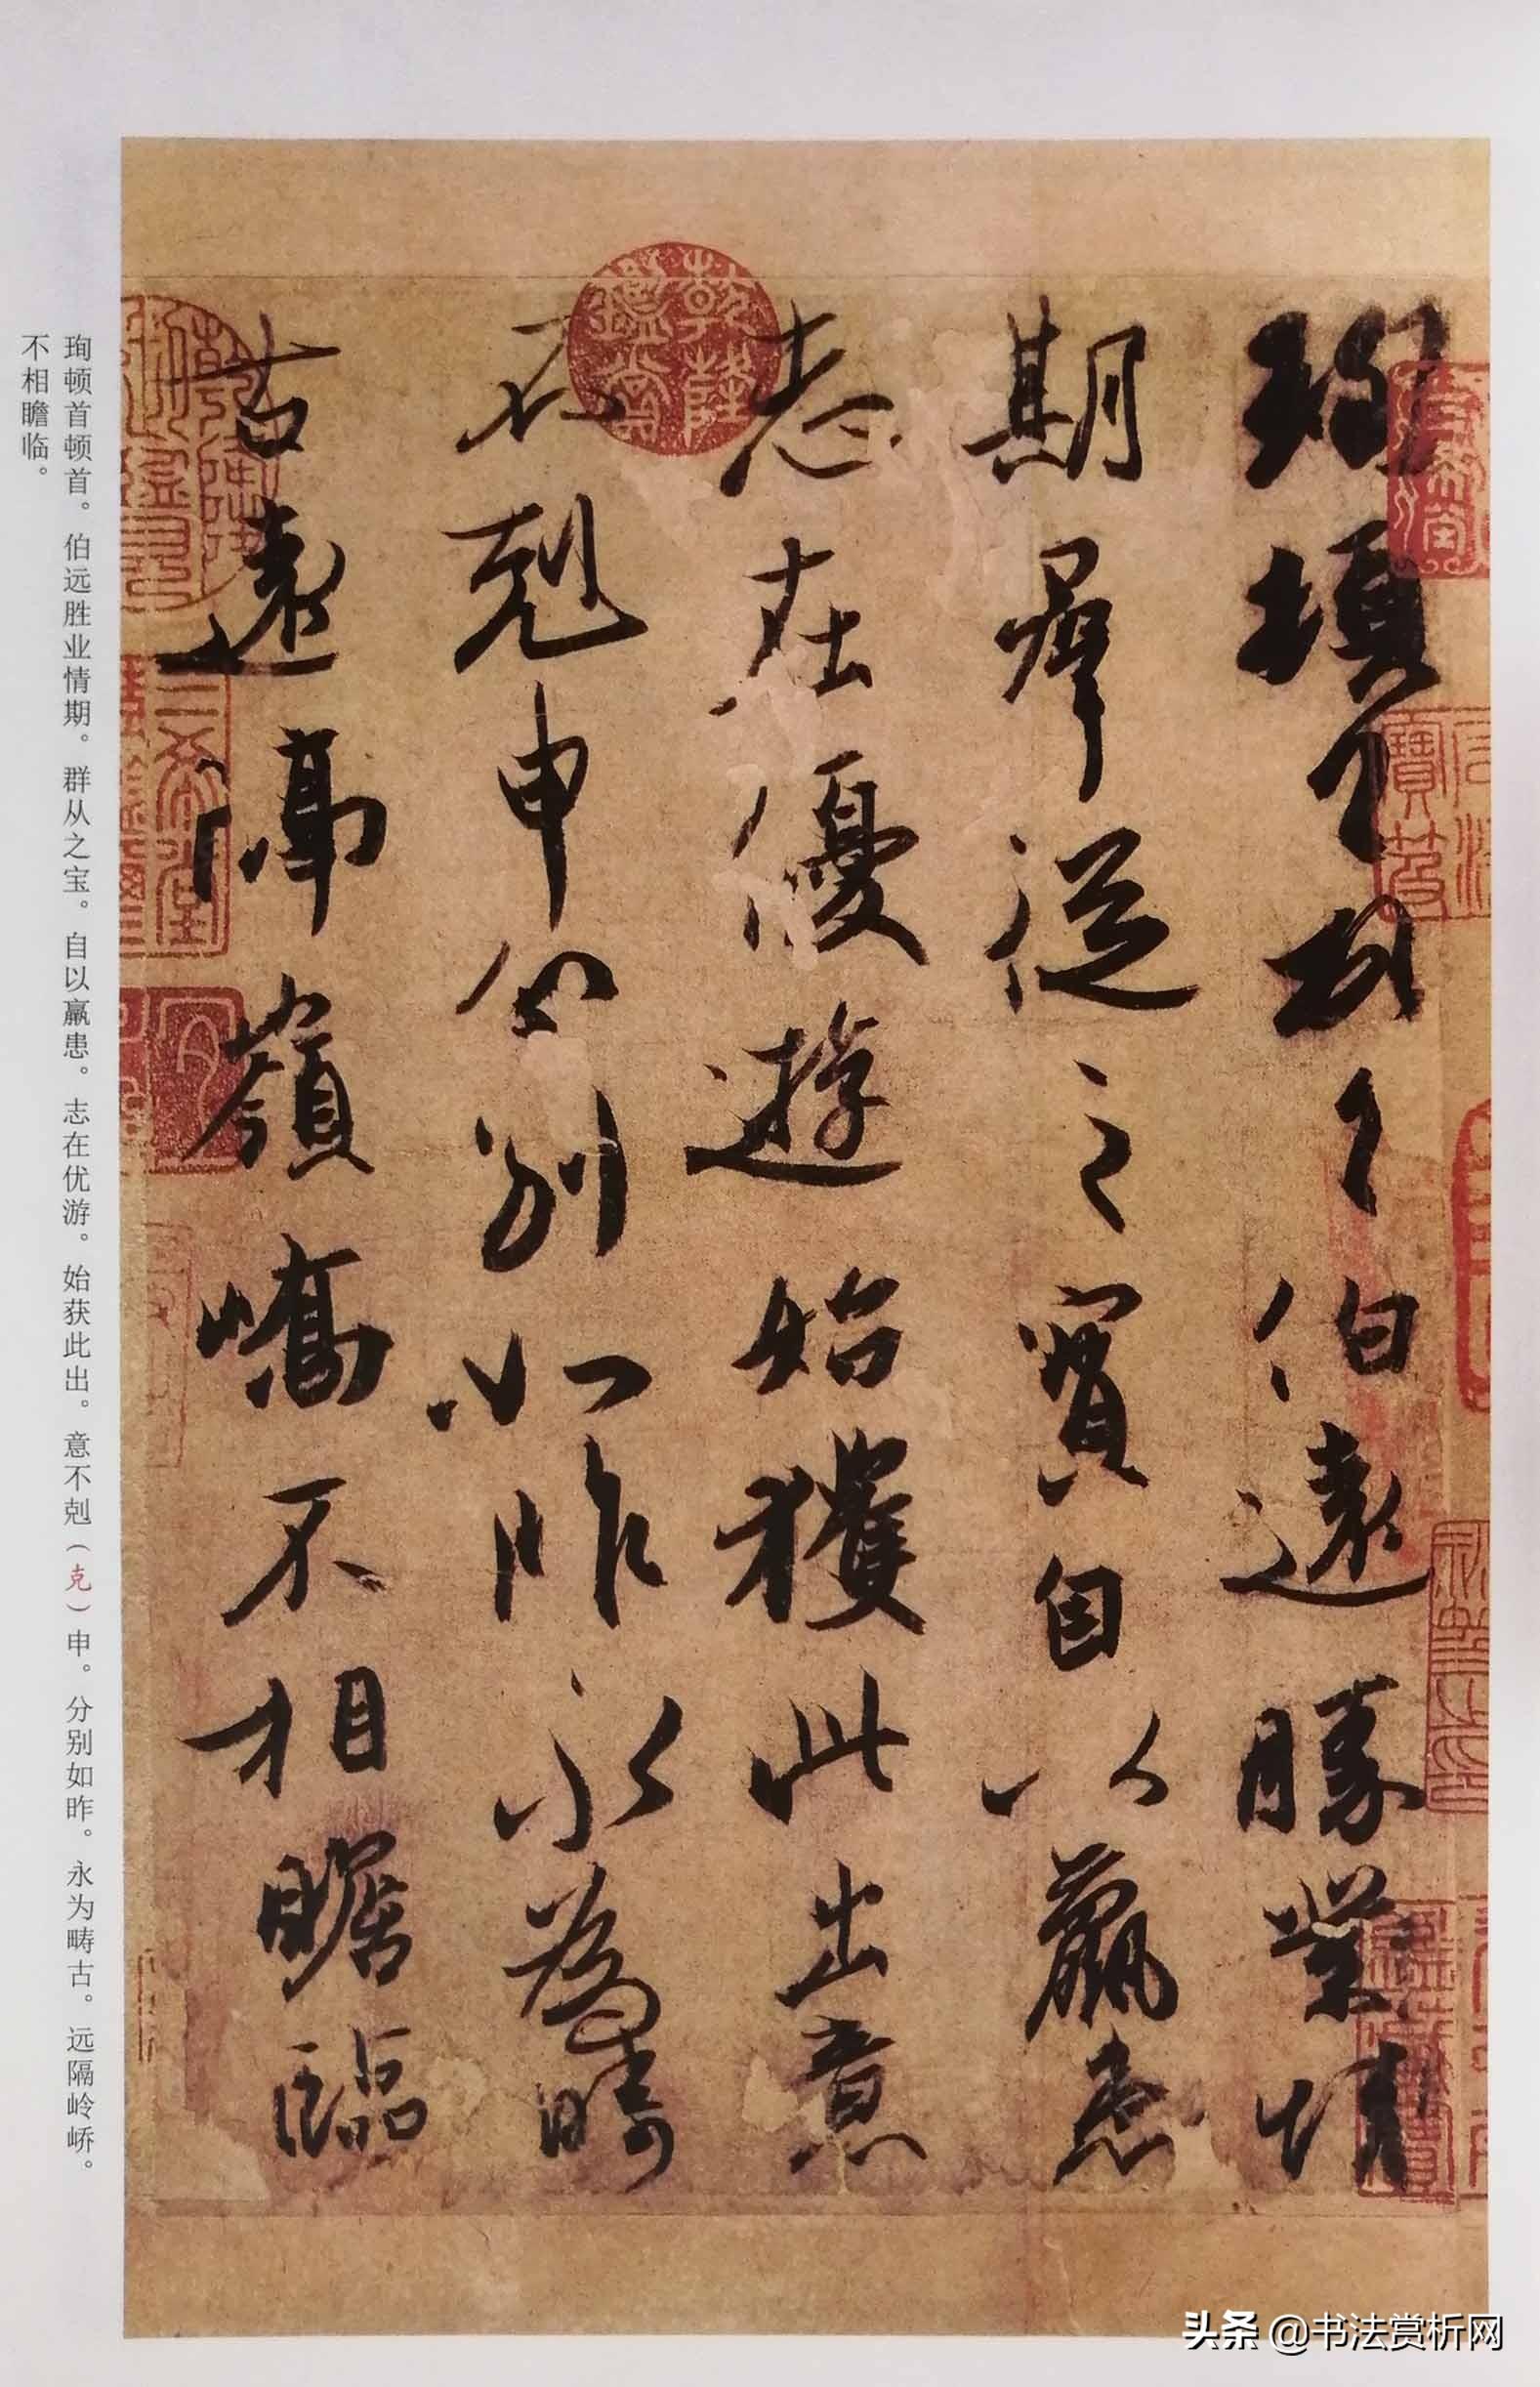 珣頓首頓首伯遠勝業情
期羣從之寶自以羸患
志在優遊始獲此出意
不剋申分別如昨永為疇
古遠隔嶺嶠不相瞻臨
乾隆鑑賞
三希堂
珣顿首顿首。伯远胜业情期。群从之宝。自以羸患。志在优游。始获此出。意不剋（克）申。分别如昨。永为畴古。远隔岭峤。
不相瞻临。
头条 @书法赏析网